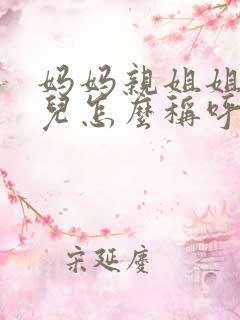 妈妈親姐姐
兒怎麼稱呼
宋延慶